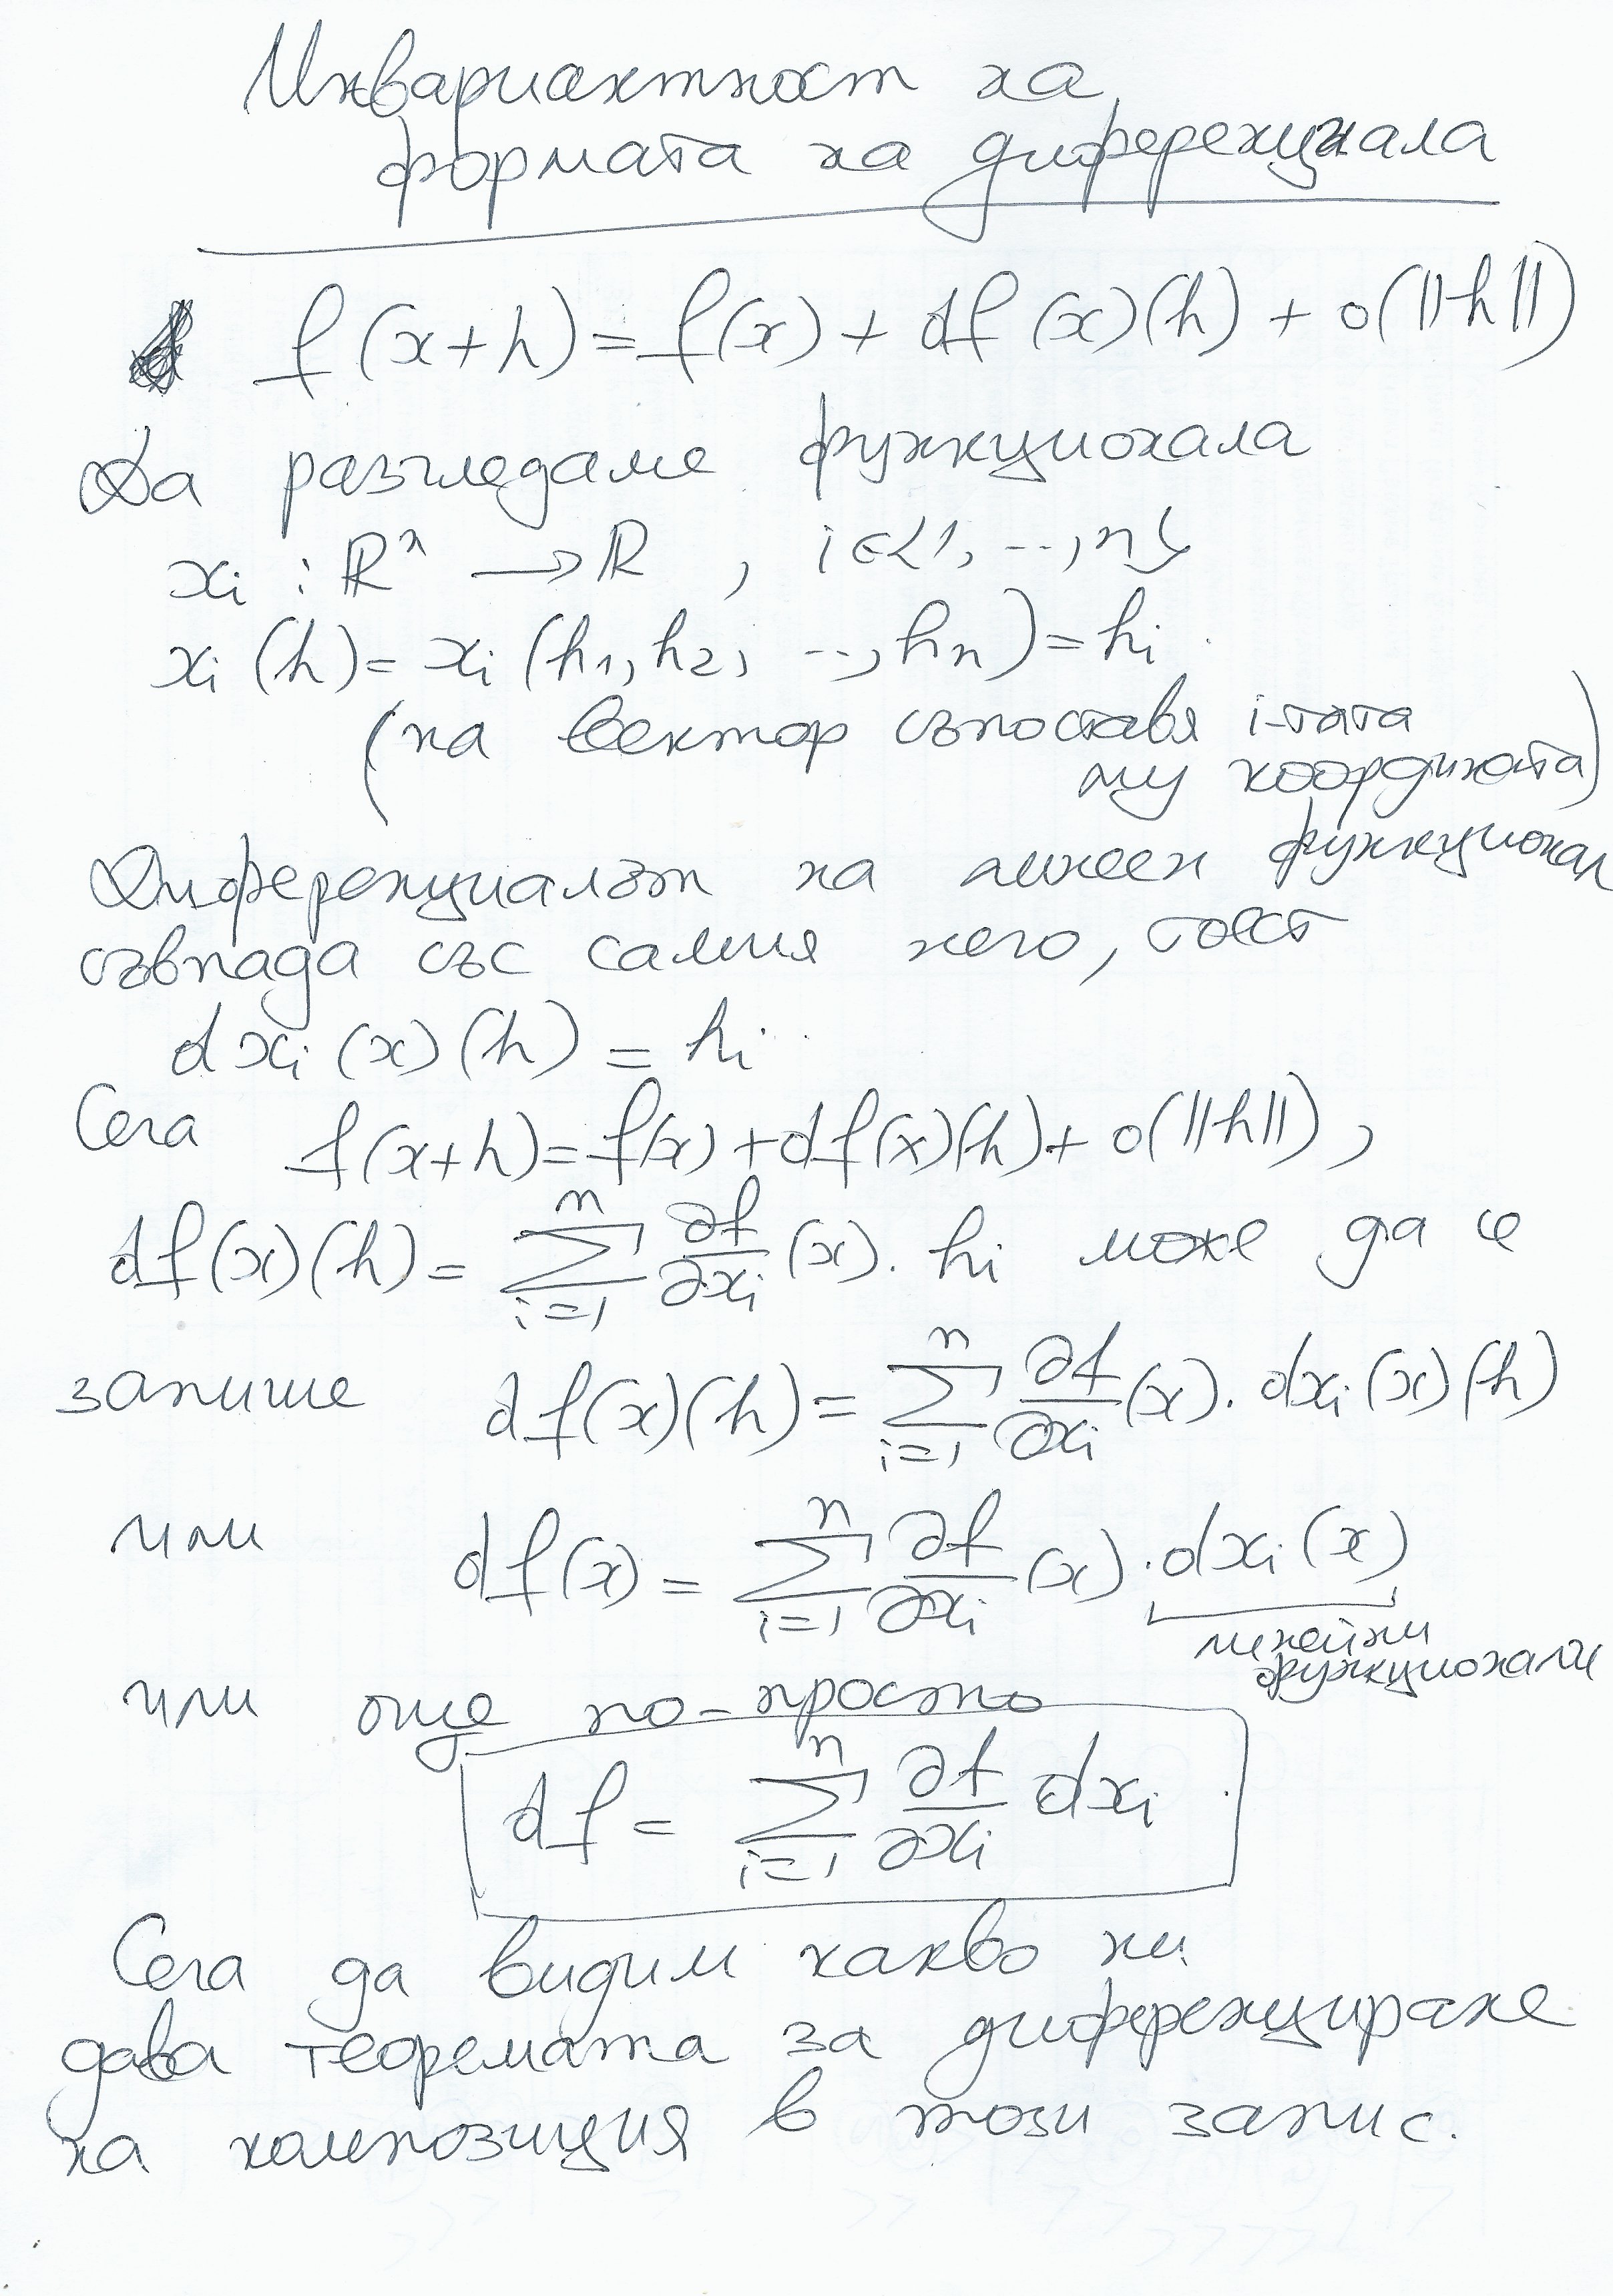 Инвариантност на
формата на диференциала
f(x+h) = f(x) + df(x)(h) + o(||h||)
Да разгледаме функционала
x_i : ℝ^n → ℝ , i ∈ {1, ..., n}
x_i(h) = x_i(h_1, h_2, ..., h_n) = h_i
(на вектор съпоставя i-тата
му координата)
Диференциалът на линеен функционал
съвпада със самия него, тоест
dx_i(x)(h) = h_i
Сега f(x+h) = f(x) + df(x)(h) + o(||h||),
df(x)(h) = ∑_{i=1}^{n} ∂f/∂x_i (x) . h_i може да се
запише df(x)(h) = ∑_{i=1}^{n} ∂f/∂x_i (x) . dx_i(x)(h)
или df(x) = ∑_{i=1}^{n} ∂f/∂x_i (x) . dx_i(x)
линейни
функционали
или още по-просто
df = ∑_{i=1}^{n} ∂f/∂x_i dx_i
Сега да видим какво ни
дава теоремата за диференциране
на композиция в този запис.